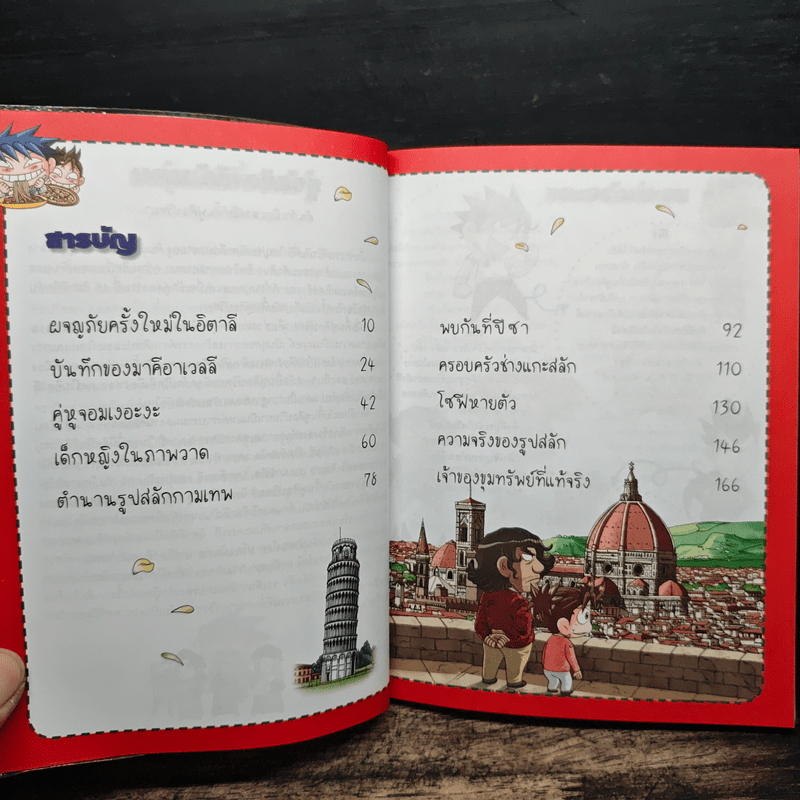 สารบัญ
ผจญภัยครั้งใหม่ในอิตาลี 10
บันทึกของมาคีอาเวลลี 24
คู่หูจอมเงอะงะ 42
เด็กหญิงในภาพวาด 60
ตำนานรูปสลักกามเทพ 78
พบกันที่ปีซา 92
ครอบครัวช่างแกะสลัก 110
โซฟีหายตัว 130
ความจริงของรูปสลัก 146
เจ้าของขุมทรัพย์ที่แท้จริง 166